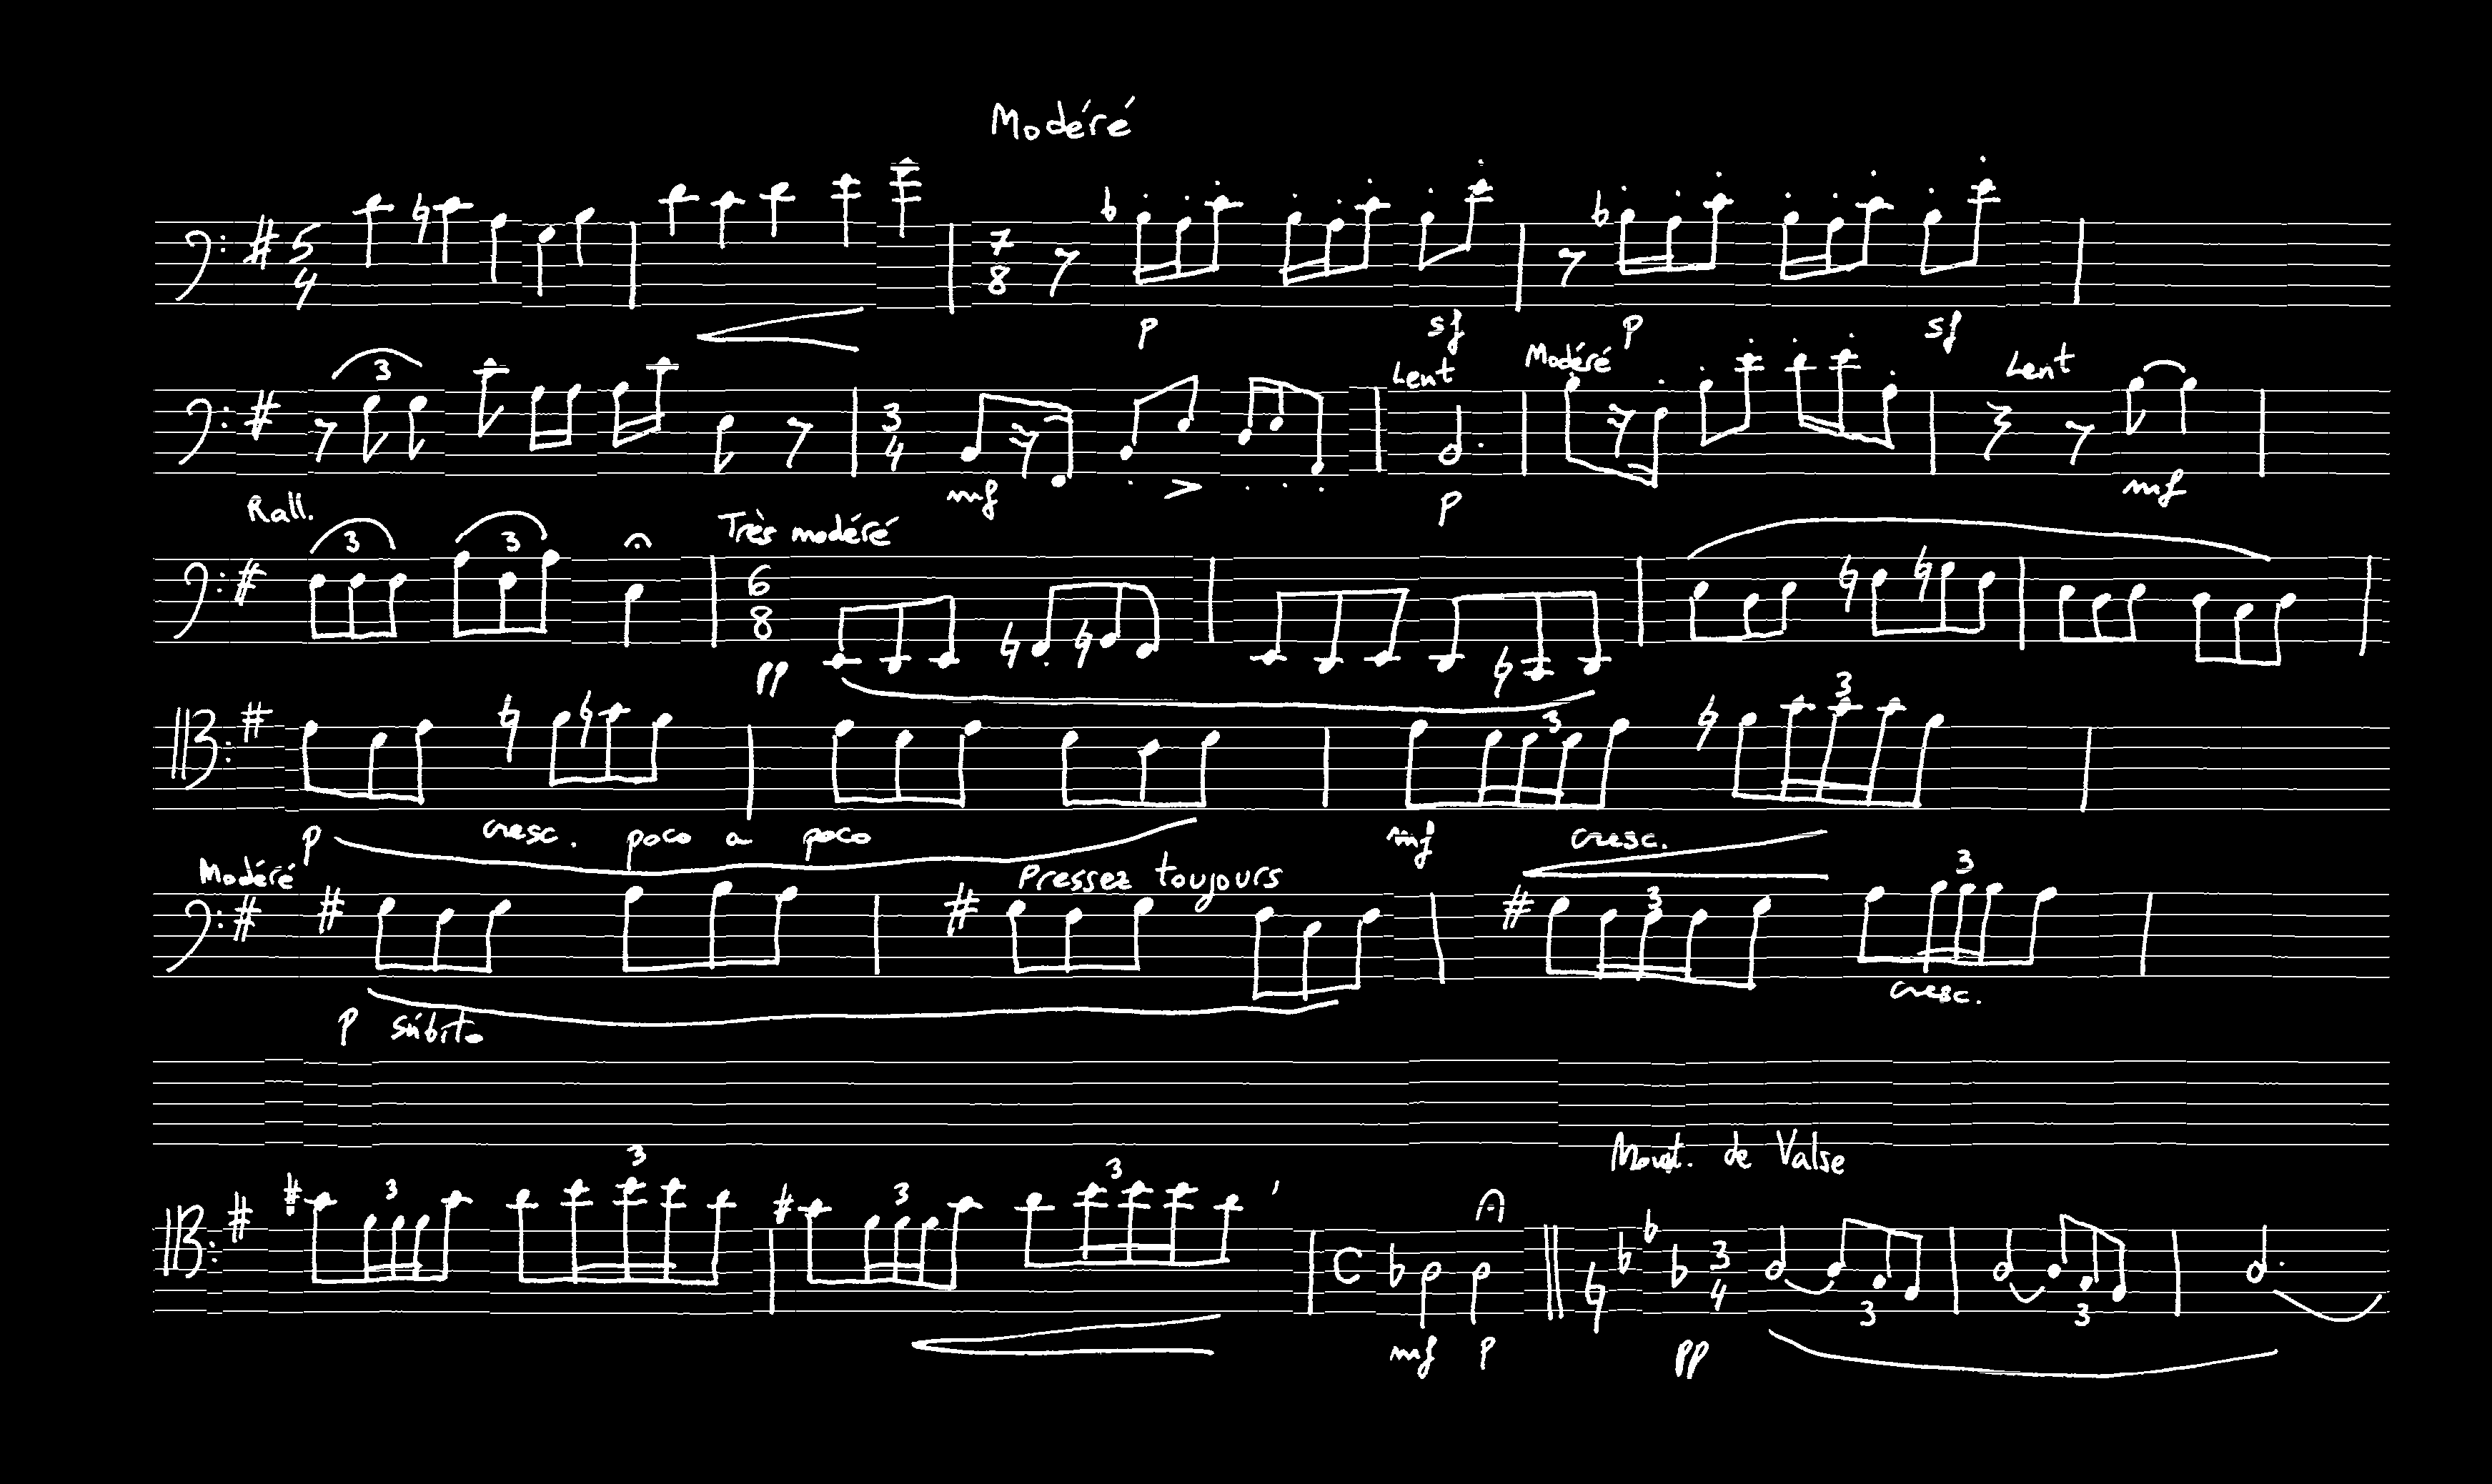 Modéré
5 4 7 8
p sf p sf
3 Lent Modéré Lent
3 4
mf p mf
Rall. 3 3 Très modéré
6 8
pp
3 3
p cresc. poco a poco mf cresc.
Modéré Pressez toujours 3 3
cresc.
p súbito
Movt. de Valse
3 3 3 3
C 3 4
3 3
mf p pp